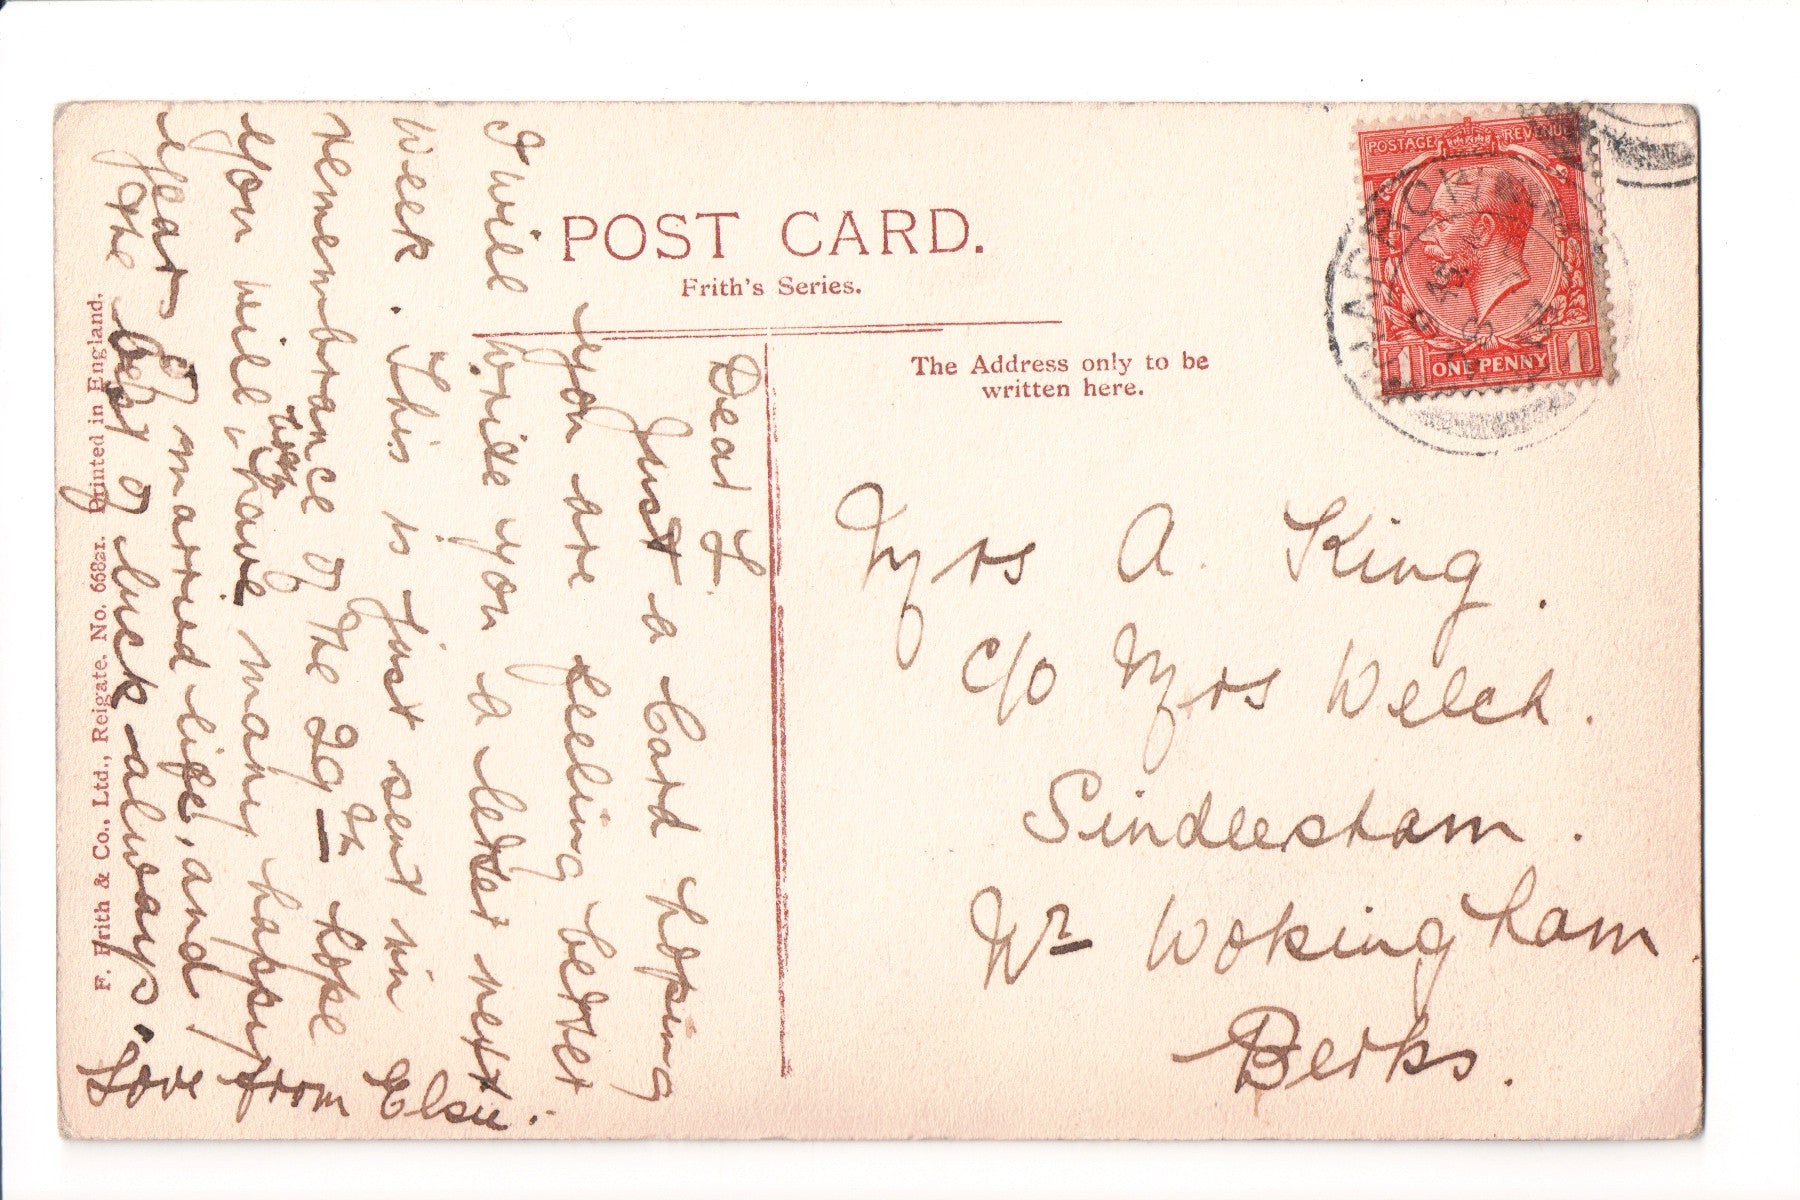 POST CARD.
Frith's Series.
The Address only to be
written here.
POSTAGE REVENUE
1 ONE PENNY 1
Mrs A. King.
c/o Mrs Welch.
Sindlesham.
Nr Wokingham.
Berks.
Dear L.
Just a Card hoping
you are feeling better
I will write you a letter next
week. This is just sent in
remembrance of the 29th hope
you will have many happy
years of married life, and
the best of luck always.
Love from Elsie.
F. Frith & Co., Ltd., Reigate. No. 66821. Printed in England.